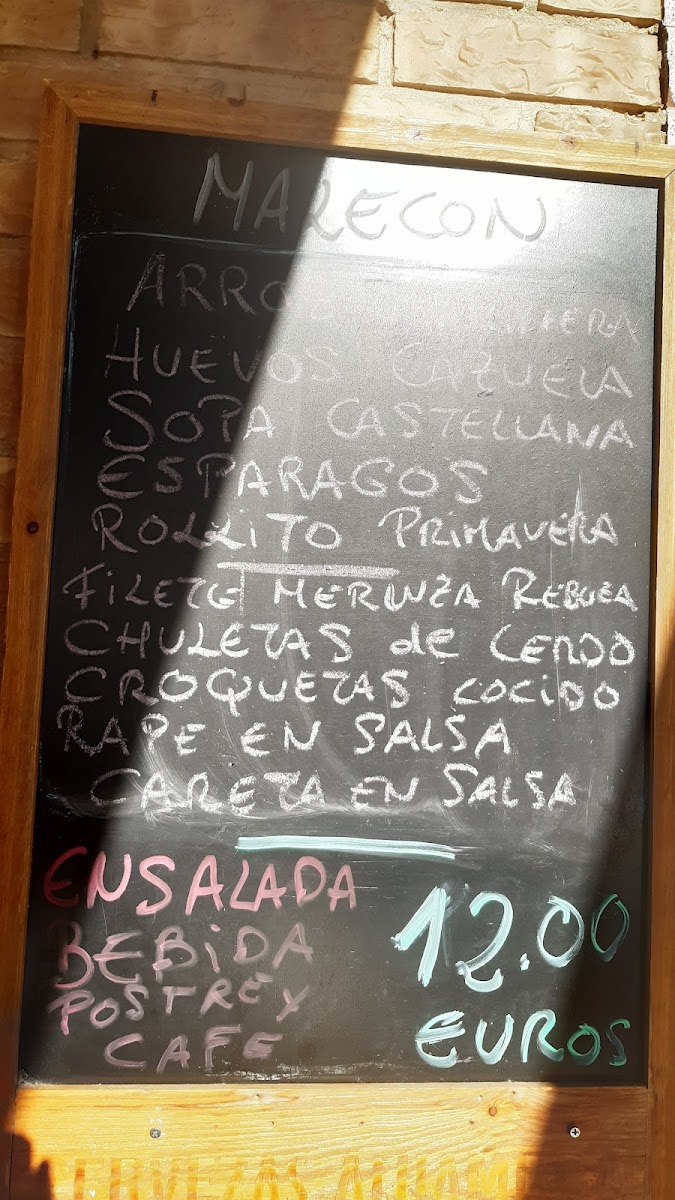 MALECON
ARROZ
HUEVOS CAZUELA
SOPA CASTELLANA
ESPARAGOS
ROLLITO PRIMAVERA
FILETE MERLUZA REBOZA
CHULETAS de CERDO
CROQUETAS COCIDO
RAPE EN SALSA
CARETA EN SALSA
ENSALADA
BEBIDA
POSTRE Y
CAFE
12.00
EUROS
CERVEZAS ALHAMBRA